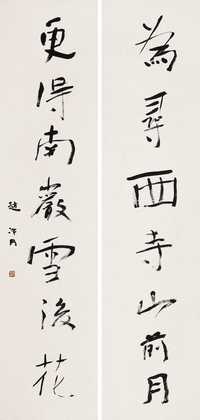 為尋西寺山前月
更得南巖雪後花
趙冷月